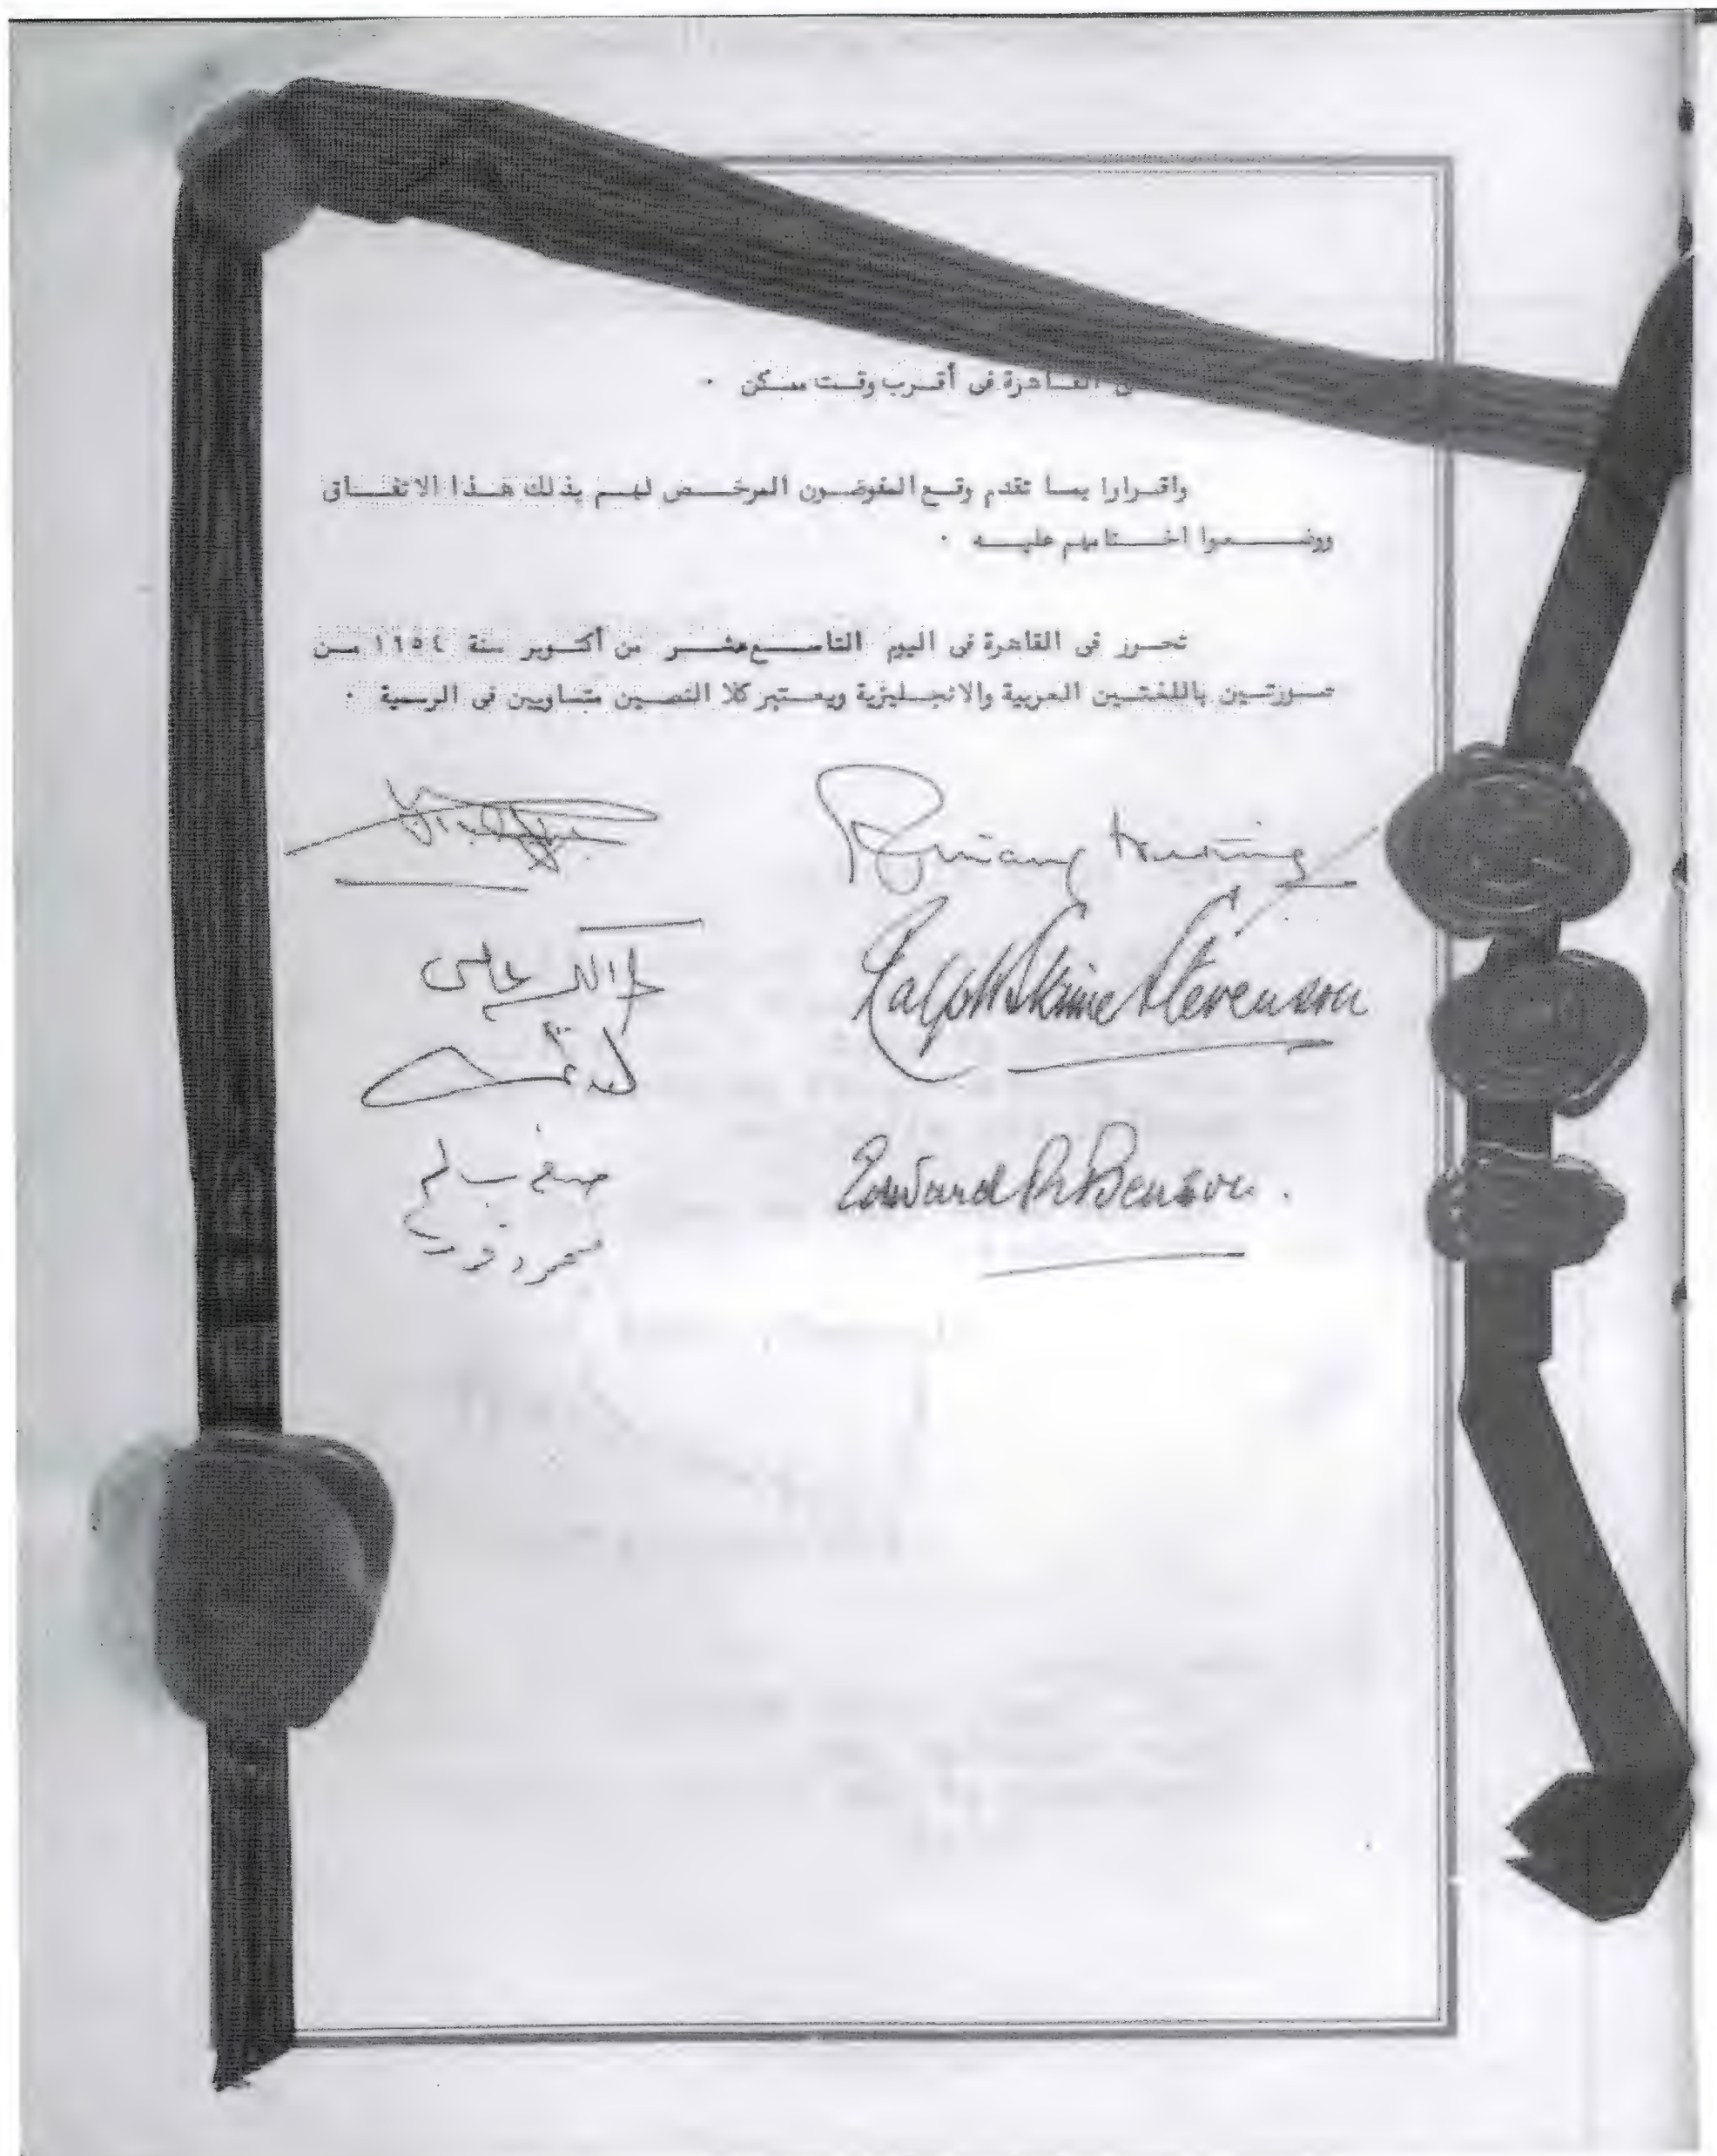 القـاهرة فى أقـرب وقـت ممـكن ٠
واقـرارا بمـا تقدم وقـع المفوضـون المرخـص لهـم بذلك هـذا الاتفـاق
ووضـعوا اختـامهم عليـه ٠
تحـرر فى القاهرة فى اليوم التاسـع عشـر من أكتـوبر سنة ١٩٥٤ مـن
صـورتـين باللغتـين العربية والانجـليزية ويعـتبر كلا النصـين متساويين فى الرسمية ٠
Ralph Skrine Stevenson
Edward R Benson.
صلاح سالم
محمود فوزى